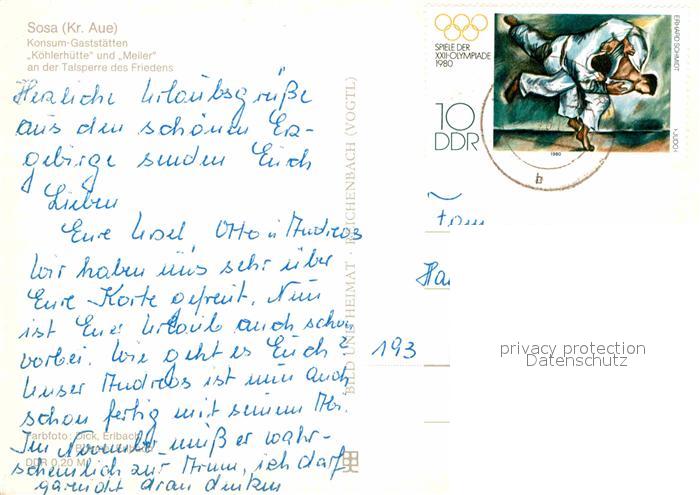 Sosa (Kr. Aue)
Konsum-Gaststätten
„Köhlerhütte" und „Meiler"
an der Talsperre des Friedens
Herzliche Urlaubsgrüße
aus den schönen Erz-
gebirge senden Euch
Lieben
Eure Ursel, Otto u Andreas
Wir haben uns sehr über
Eure Karte gefreut. Nun
ist Euer Urlaub auch schon
vorbei. Wie geht es Euch?
Unser Andreas ist nun auch
schon fertig mit seinem
Im November muß er wahr-
scheinlich zur Armee, ich darf
garnicht dran denken
Farbfoto: Dick, Erlbach
DDR 0,20 M
BILD UND HEIMAT · REICHENBACH (VOGTL)
SPIELE DER
XXII. OLYMPIADE
1980
10
DDR
ERHARD SCHMIDT
»JUDO«
1980
b
Fam
Ha
193
privacy protection
Datenschutz